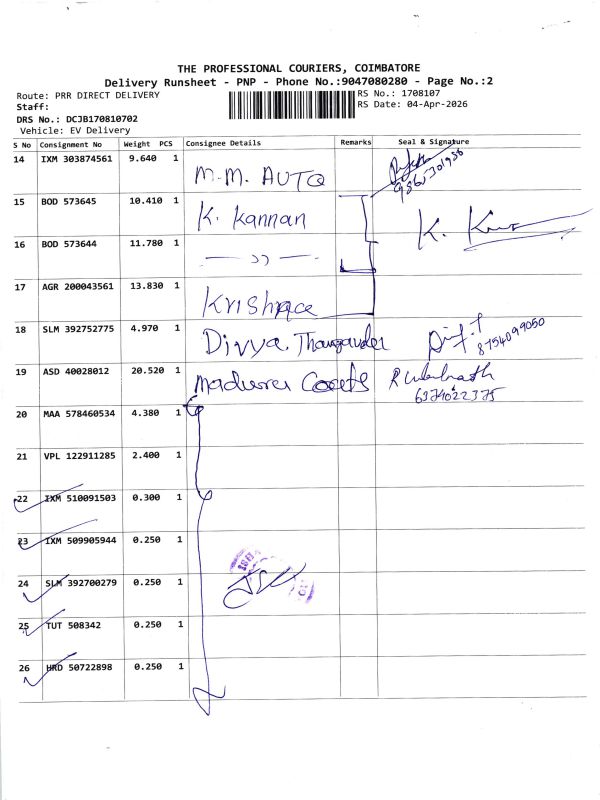 THE PROFESSIONAL COURIERS, COIMBATORE
Delivery Runsheet - PNP - Phone No.:9047080280 - Page No.:2
Route: PRR DIRECT DELIVERY
RS No.: 1708107
Staff:
RS Date: 04-Apr-2026
DRS No.: DCJB170810702
Vehicle: EV Delivery
S No Consignment No Weight PCS Consignee Details Remarks Seal & Signature
14 IXM 303874561 9.640 1 M.M. AUTO
15 BOD 573645 10.410 1 K. Kannan K.
16 BOD 573644 11.780 1 — )) —
17 AGR 200043561 13.830 1
18 SLM 392752775 4.970 1 Divya. 8754099050
19 ASD 40028012 20.520 1 Madurai Coats
6374022375
20 MAA 578460534 4.380 1
21 VPL 122911285 2.400 1
22 IXM 510091503 0.300 1
23 IXM 509905944 0.250 1
24 SLM 392700279 0.250 1
25 TUT 508342 0.250 1
26 HRD 50722898 0.250 1